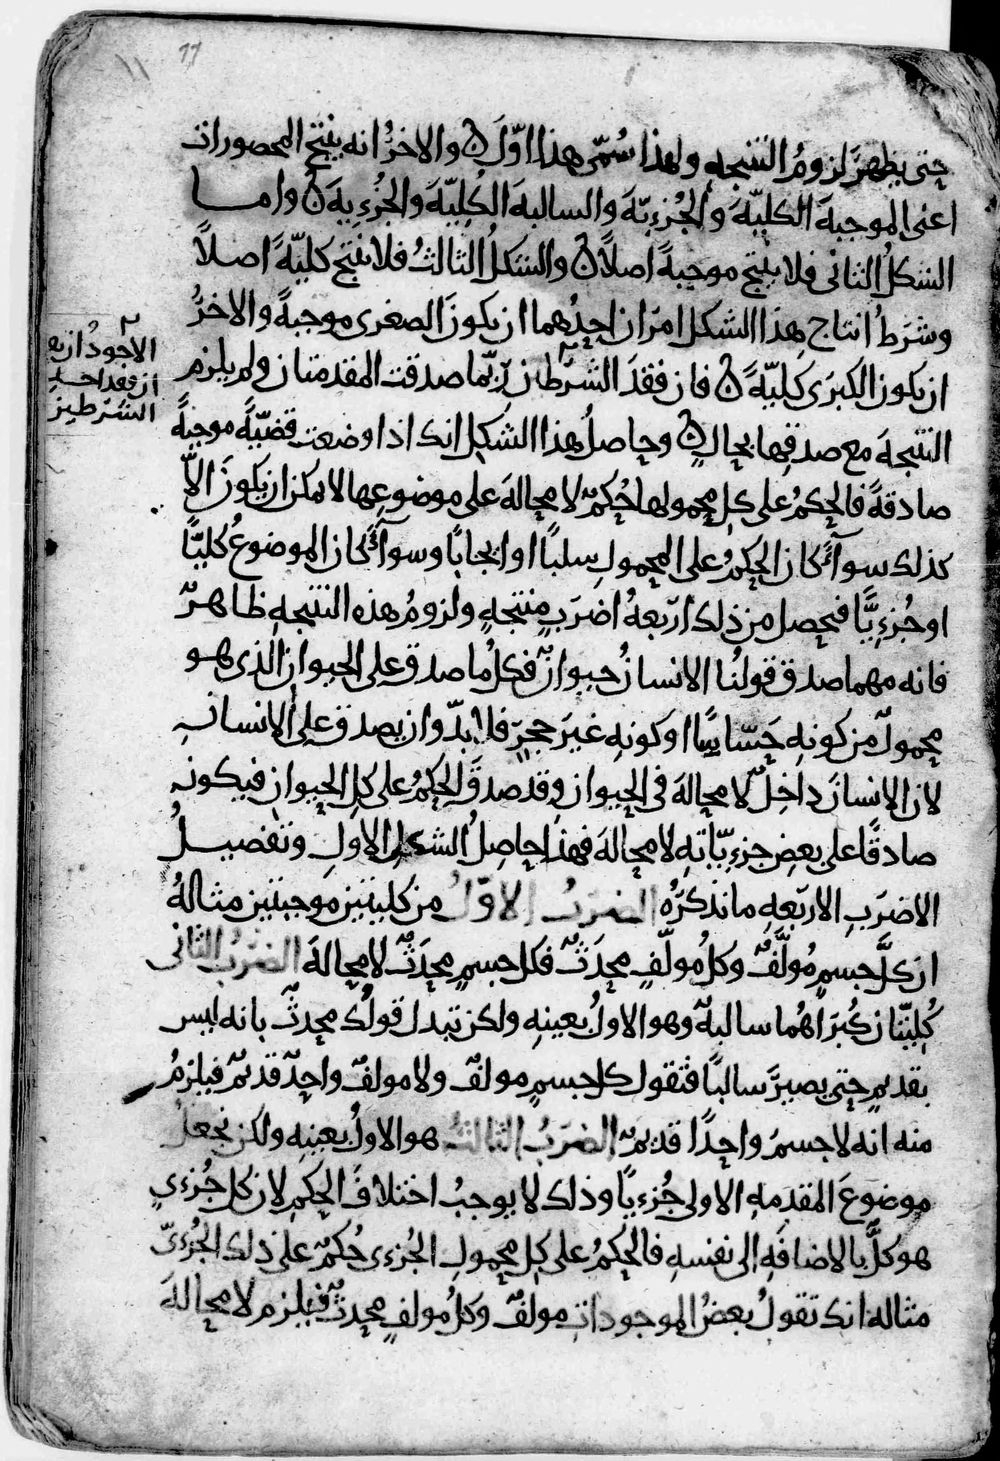 ١١ 11
حتى يظهر لزومُ النتيجه ولهذا سُمّى هذا اوّلَ ن والاخرُ انه ينتج المحصورات
اعنى الموجبهَ الكليّهَ والجُزءيّهَ والسالبهَ الكُليّهَ والجُزءيهَ ن واما
الشكلُ الثانى فلا ينتج موجبهً اصلًا ن والشكلُ الثالثُ فلا ينتج كليّهً اصلاً
وشرطُ انتاج هذا الشكل امرَان احدُهما ان يكونَ الصغرى موجبهً والاخرُ
ان يكون الكبرَى كليّهً ن فان فقدَ الشرطان ربّما صدقت المقدمتان ولم يلزم
النتيجهَ مع صدقِها بحالٍ ن وحاصلُ هذا الشكل انك اذا وضعت قضيّهً موجبهً
صادقهً فالحكمُ على كلِ محمولها حُكمٌ لا محالهَ على موضوعِها لا يمكن ان يكونَ الاّ
كذلك سوآً كان الحكمُ على المحمولِ سلبًا او ايجابًا وسوآً كان الموضوعُ كليًّا
او جُزءيًّا فيحصل من ذلك اربعهُ اضربٍ منتجهٍ ولزومُ هذه النتيجهِ ظاهرٌ
فانه مهما صدق قولُنا الانسانُ حيوانٌ فكلُ ما صدق على الحيوان الذى هو
محمولٌ من كونهِ حَسّاسًا او كونهِ غيرَ حجرٍ فلا بدّ وان يصدق على الانسان
لان الانسانَ داخلٌ لا محالهَ فى الحيوان وقد صدقَ الحكمُ على كلِ الحيوانِ فيكون
صادقًا على بعضِ جزءيّاتهِ لا محالهَ فهذا حاصلُ الشكل الاولِ وتفصيلُ
الاضربِ الاربعهِ ما نذكرُه الضربُ الاوّلُ من كليتين موجبتين مثالهُ
ان كلَّ جسمٍ مُولَّفٌ وكلُ مولّفٍ محدَثٌ فكل جسمٍ محدَثٌ لا محالهَ الضربُ الثانى
كُليّتان كُبرَاهُما سالبهٌ وهو الاولُ بعينهِ ولكن تبدل قولُك محدثٌ بانه ليس
بقديمٍ حتى يصيرَ سالبًا فتقول كل جسمٍ مولفٌ ولا مولفٌ واحدٌ قديمٌ فيلزمُ
منه انه لا جسمَ واحدًا قديمٌ الضربُ الثالثُ هو الاولُ بعينهِ ولكن نجعلُ
موضوعَ المقدمهِ الاولى جُزءيًا وذلك لا يوجبُ اختلافَ الحكمِ لان كل جُزءىٍ
هو كلٌّ بالاضافهِ الى نفسهِ فالحكمُ على كلِ محمولِ الجُزءى حُكمٌ على ذلك الجُزءىّ
مثاله انك تقولُ بعضُ الموجوداتِ مولفٌ وكلُ مولفٍ محدثٌ فيلزم لا محالهَ
الاجودُ ان يه
ان فقد احد
الشرطين